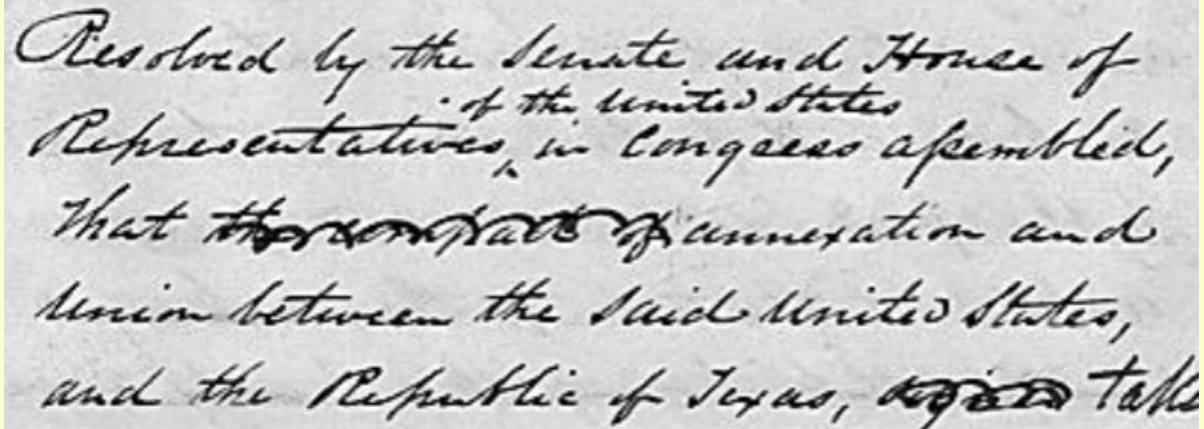 Resolved by the Senate and House of
of the United States
Representatives, in Congress assembled,
that the compact of annexation and
Union between the said United States,
and the Republic of Texas, take